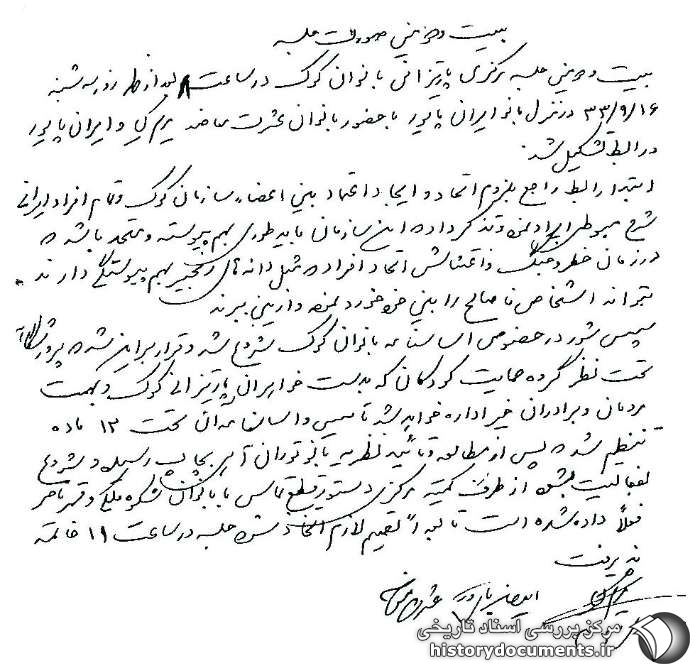 بیست و دومین صورت جلسه
بیست و دومین جلسه مرکزی پارتیزانی بانوان کوک در ساعت ۸ بعد از ظهر روز سه شنبه
۳۳/۹/۱۶ در منزل بانو ایران پاپور با حضور بانوان عشرت مریم و ایران پاپور
و رابط تشکیل شد.
ابتدا رابط راجع بلزوم اتحاد و ایجاد اعتماد بین اعضاء سازمان کوک و تمام افراد ایرانی
شرح مبسوطی ایراد نموده تذکر داد که این سازمان باید طوری بهم پیوسته و متحد باشد که
در زمان خطر و جنگ و اغتشاش اتحاد افراد که مثل دانه‌های زنجیر بهم پیوستگی دارند
نتواند اشخاص ناصالح را بین خود خورد نموده و از بین ببرند
سپس شور در خصوص اساسنامه بانوان کوک شروع شد و قرار بر این شد که پرورشگاه
تحت نظر گروه حمایت کودکان که بدست خواهران پارتیزانی کوک و بهمت
مردمان و برادران خیر اداره خواهد شد تأسیس و اساسنامه آن تحت ۱۳ ماده
تنظیم شد که پس از مطالعه و تأیید نظریه بانو توران آبی بچاپ رسیده و شروع
بفعالیت بشود از طرف کمیته مرکزی دستور قطع تماس با بانوان شکوه ملکی و قمر ناصر
فعلاً داده شده است تا بعداً تصمیم لازم اتخاذ شود جلسه در ساعت ۱۹ خاتمه
پذیرفت
ایران پاپور
مرکز بررسی اسناد تاریخی
historydocuments.ir